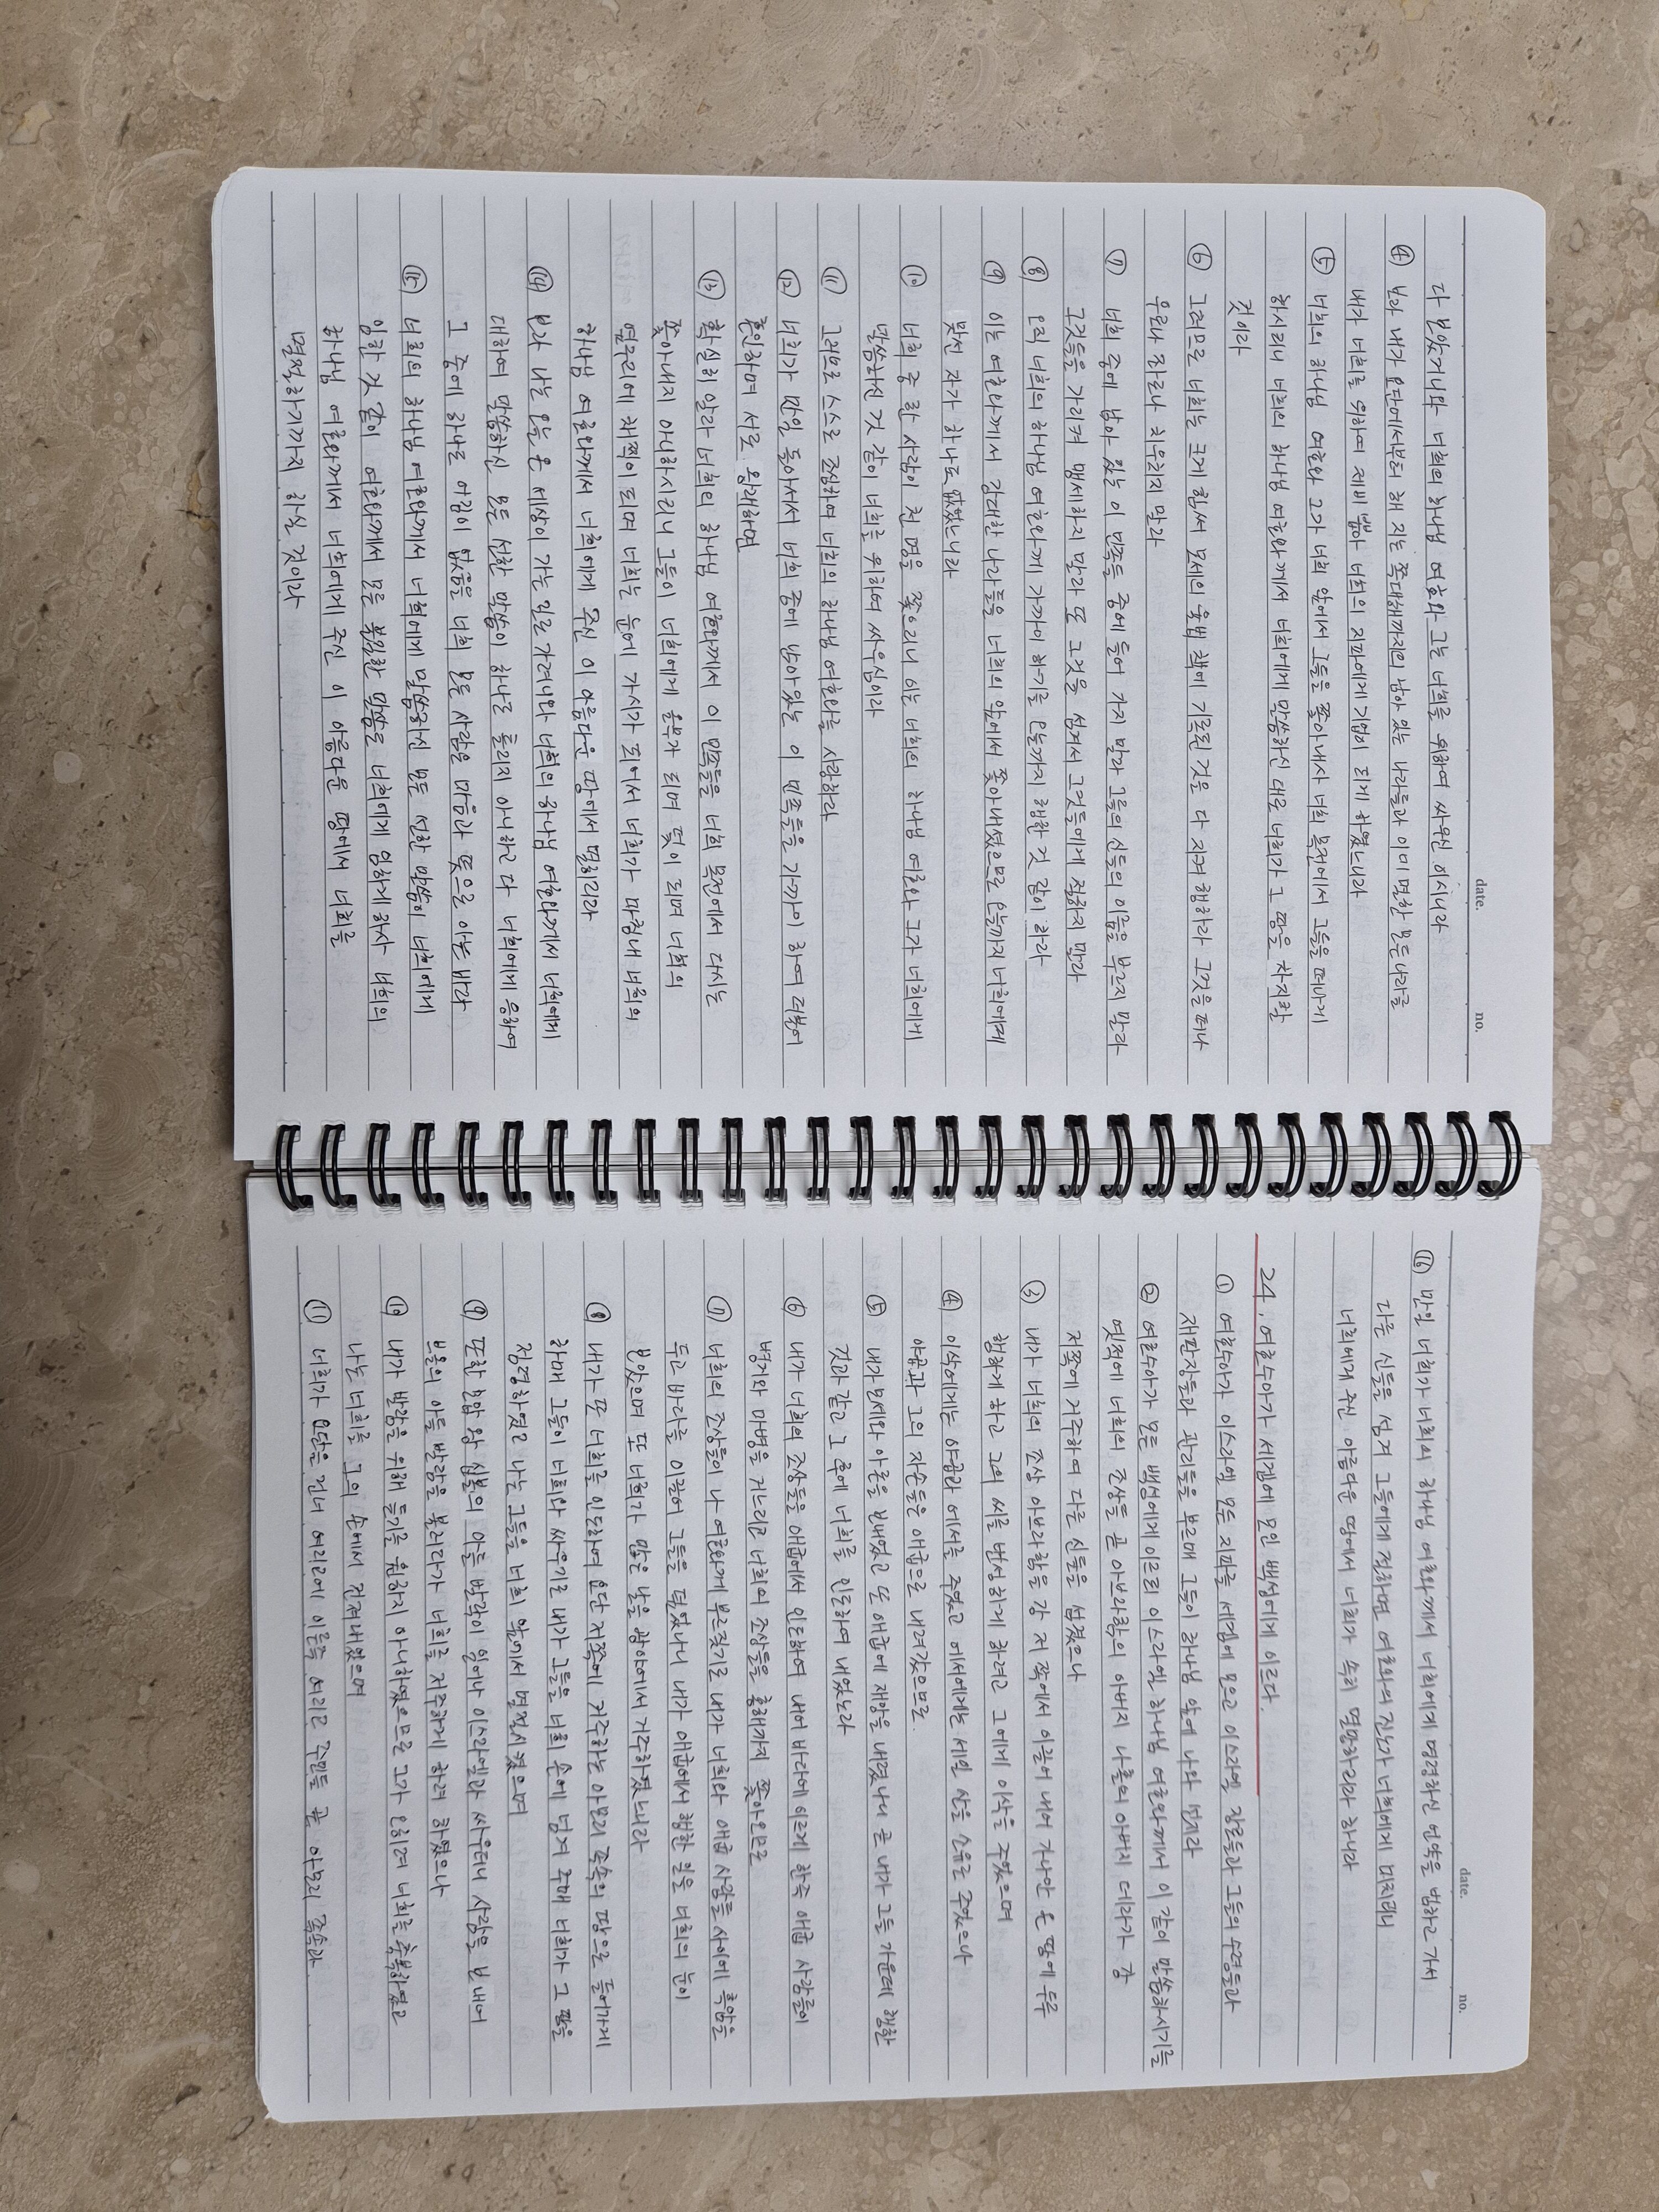 date. no.
다 보았거니와 너희의 하나님 여호와 그는 너희를 위하여 싸우신 이시니라
④ 보라 내가 요단에서부터 해 지는 쪽 대해까지의 남아 있는 나라들과 이미 멸한 모든 나라를
내가 너희를 위하여 제비 뽑아 너희의 지파에게 기업이 되게 하였느니라
⑤ 너희의 하나님 여호와 그가 너희 앞에서 그들을 쫓아내사 너희 목전에서 그들을 떠나게
하시리니 너희의 하나님 여호와께서 너희에게 말씀하신 대로 너희가 그 땅을 차지할
것이라
⑥ 그러므로 너희는 크게 힘써 모세의 율법 책에 기록된 것을 다 지켜 행하라 그것을 떠나
우로나 좌로나 치우치지 말라
⑦ 너희 중에 남아 있는 이 민족들 중에 들어 가지 말라 그들의 신들의 이름을 부르지 말라
그것들을 가리켜 맹세하지 말라 또 그것을 섬겨서 그것들에게 절하지 말라
⑧ 오직 너희의 하나님 여호와께 가까이 하기를 오늘까지 행한 것 같이 하라
⑨ 이는 여호와께서 강대한 나라들을 너희의 앞에서 쫓아내셨으므로 오늘까지 너희에게
맞선 자가 하나도 없었느니라
⑩ 너희 중 한 사람이 천 명을 쫓으리니 이는 너희의 하나님 여호와 그가 너희에게
말씀하신 것 같이 너희를 위하여 싸우심이라
⑪ 그러므로 스스로 조심하여 너희의 하나님 여호와를 사랑하라
⑫ 너희가 만일 돌아서서 너희 중에 남아있는 이 민족들을 가까이 하여 더불어
혼인하며 서로 왕래하면
⑬ 확실히 알라 너희의 하나님 여호와께서 이 민족들을 너희 목전에서 다시는
쫓아내지 아니하시리니 그들이 너희에게 올무가 되며 덫이 되며 너희의
옆구리에 채찍이 되며 너희의 눈에 가시가 되어서 너희가 마침내 너희의
하나님 여호와께서 너희에게 주신 이 아름다운 땅에서 멸하리라
⑭ 보라 나는 오늘 온 세상이 가는 길로 가려니와 너희의 하나님 여호와께서 너희에게
대하여 말씀하신 모든 선한 말씀이 하나도 틀리지 아니하고 다 너희에게 응하여
그 중에 하나도 어김이 없음을 너희 모든 사람은 마음과 뜻으로 아는 바라
⑮ 너희의 하나님 여호와께서 너희에게 말씀하신 모든 선한 말씀이 너희에게
임한 것 같이 여호와께서 모든 불길한 말씀도 너희에게 임하게 하사 너희의
하나님 여호와께서 너희에게 주신 이 아름다운 땅에서 너희를
멸절하기까지 하실 것이라
date. no.
⑯ 만일 너희가 너희의 하나님 여호와께서 너희에게 명령하신 언약을 범하고 가서
다른 신들을 섬겨 그들에게 절하면 여호와의 진노가 너희에게 미치리니
너희에게 주신 아름다운 땅에서 너희가 속히 멸망하리라 하니라
24. 여호수아가 세겜에 모인 백성에게 이르다.
① 여호수아가 이스라엘 모든 지파를 세겜에 모으고 이스라엘 장로들과 그들의 수령들과
재판장들과 관리들을 부르매 그들이 하나님 앞에 나와 선지라
② 여호수아가 모든 백성에게 이르되 이스라엘 하나님 여호와께서 이 같이 말씀하시기를
옛적에 너희의 조상들 곧 아브라함의 아버지 나홀의 아버지 데라가 강
저쪽에 거주하여 다른 신들을 섬겼으나
③ 내가 너희의 조상 아브라함을 강 저 쪽에서 이끌어 내어 가나안 온 땅에 두루
행하게 하고 그의 씨를 번성하게 하려고 그에게 이삭을 주었으며
④ 이삭에게는 야곱과 에서를 주었고 에서에게는 세일 산을 소유로 주었으나
야곱과 그의 자손들은 애굽으로 내려갔으므로
⑤ 내가 모세와 아론을 보내었고 또 애굽에 재앙을 내렸나니 곧 내가 그들 가운데 행한
것과 같고 그 후에 너희를 인도하여 내었노라
⑥ 내가 너희의 조상들을 애굽에서 인도하여 내어 바다에 이르게 한즉 애굽 사람들이
병거와 마병을 거느리고 너희의 조상들을 홍해까지 쫓아오므로
⑦ 너희의 조상들이 나 여호와께 부르짖기로 내가 너희와 애굽 사람들 사이에 흑암을
두고 바다를 이끌어 그들을 덮었나니 내가 애굽에서 행한 일을 너희의 눈이
보았으며 또 너희가 많은 날을 광야에서 거주하였느니라
⑧ 내가 또 너희를 인도하여 요단 저쪽에 거주하는 아모리 족속의 땅으로 들어가게
하매 그들이 너희와 싸우기로 내가 그들을 너희 손에 넘겨 주매 너희가 그 땅을
점령하였고 나는 그들을 너희 앞에서 멸절시켰으며
⑨ 또한 모압 왕 십볼의 아들 발락이 일어나 이스라엘과 싸우더니 사람을 보내어
브올의 아들 발람을 불러다가 너희를 저주하게 하려 하였으나
⑩ 내가 발람을 위해 듣기를 원하지 아니하였으므로 그가 오히려 너희를 축복하였고
나는 너희를 그의 손에서 건져내었으며
⑪ 너희가 요단을 건너 여리고에 이른즉 여리고 주민들 곧 아모리 족속과